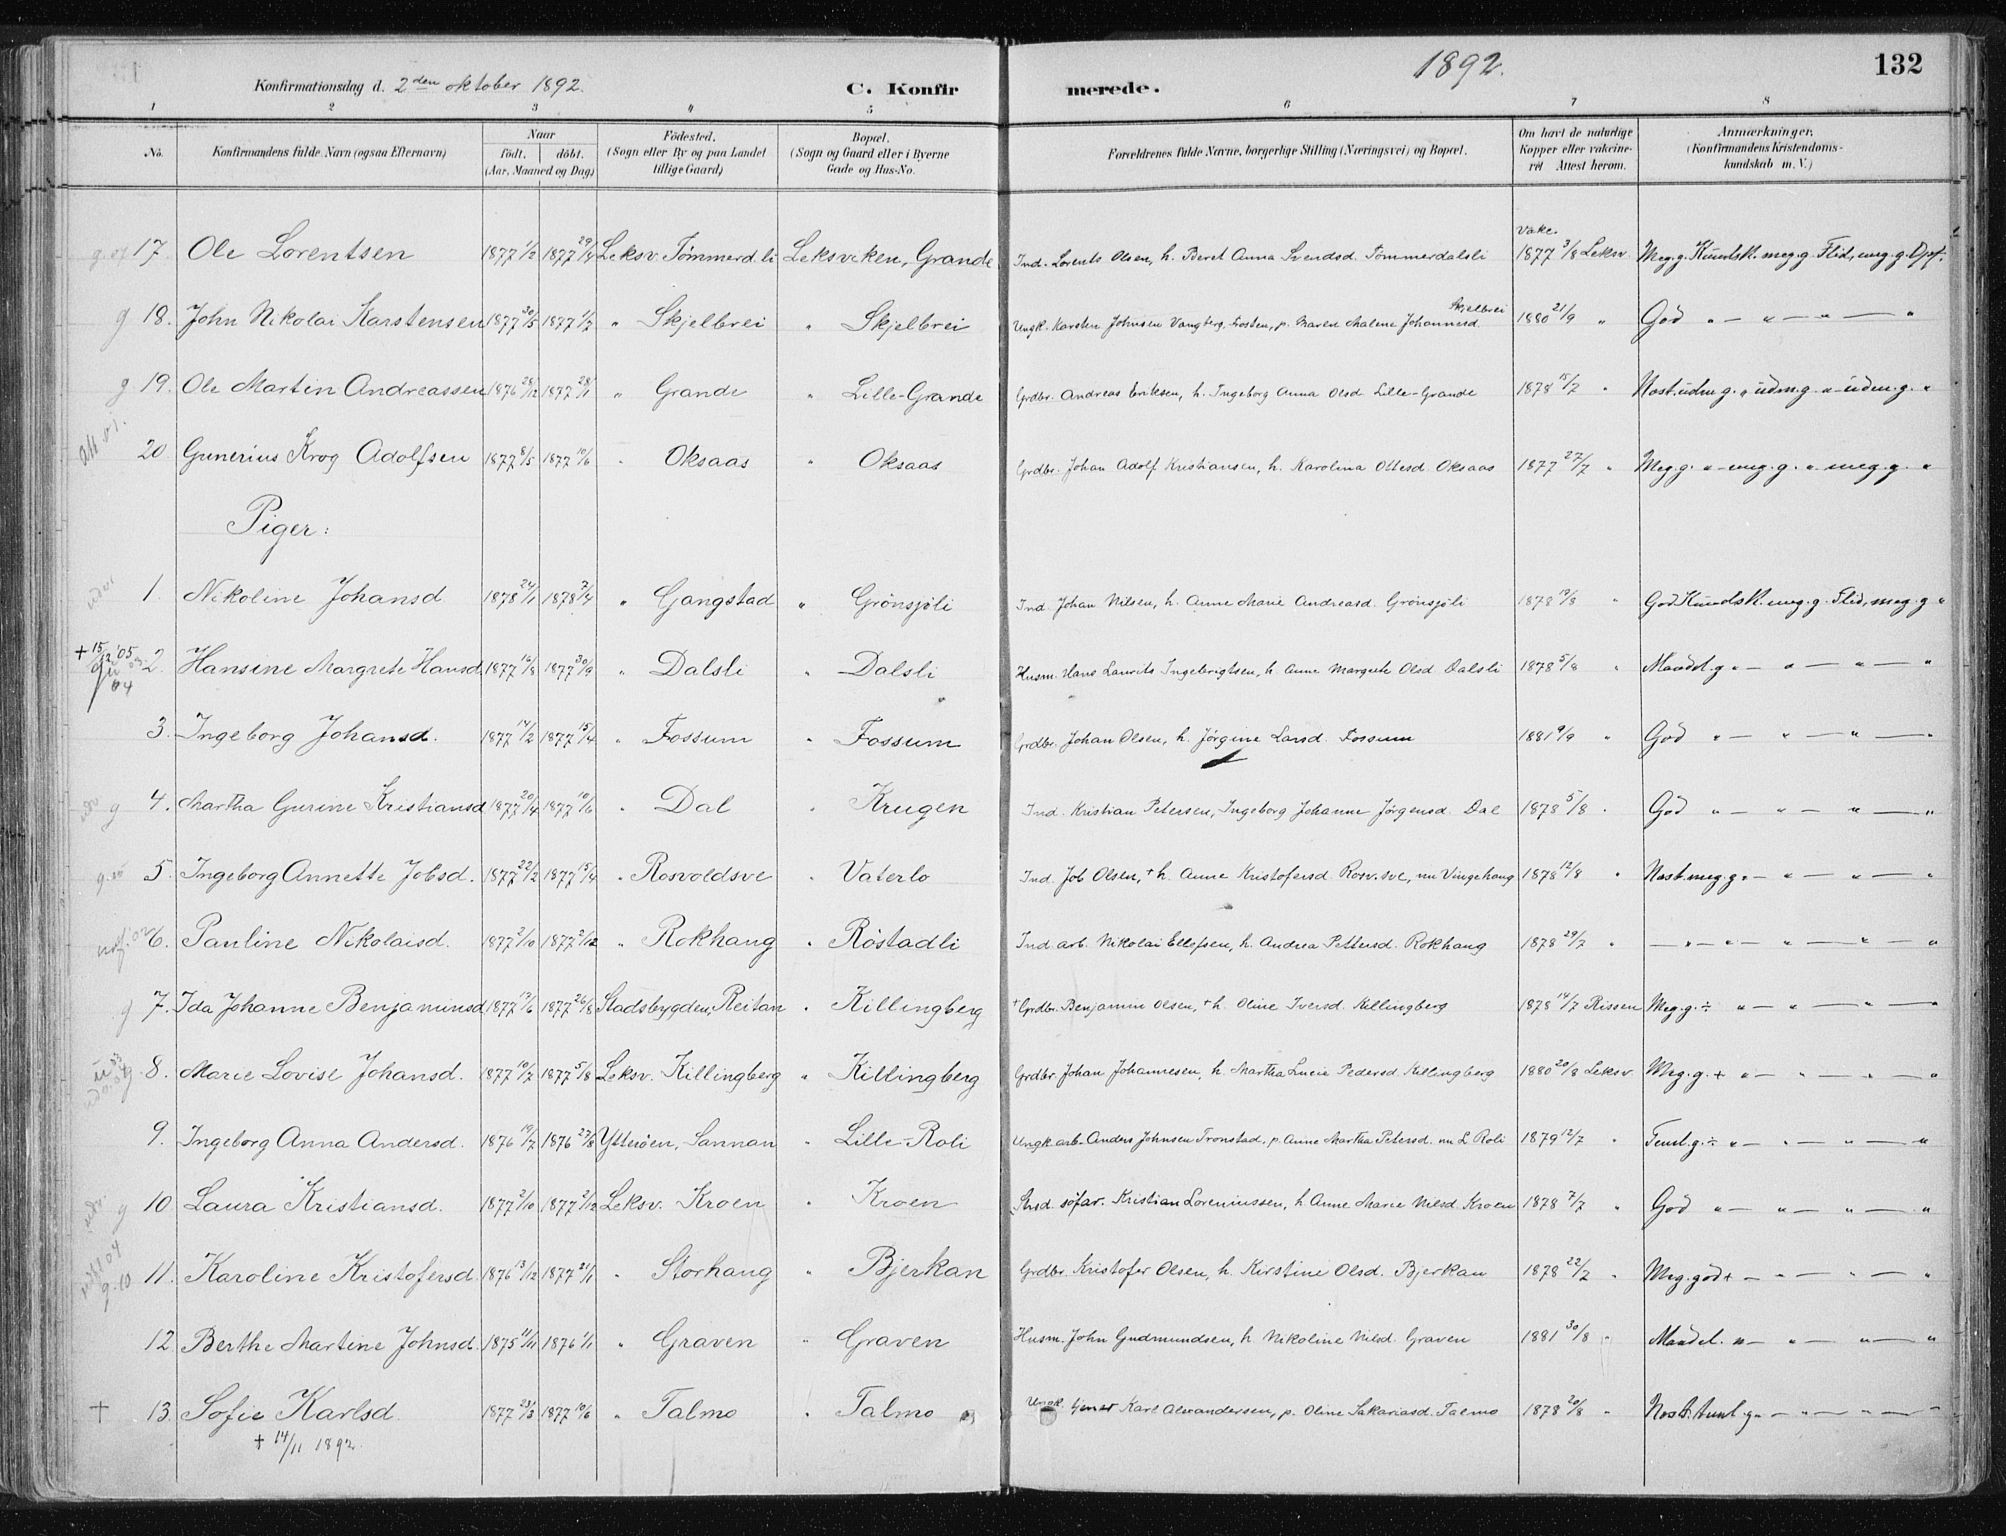 1892.
132
Konfirmationsdag d. 2den oktober 1892.
C. Konfirmerede.
1 2 3 4 5 6 7 8
No. Konfirmandens fulde Navn (ogsaa Efternavn) Naar födt. döbt. (Aar, Maaned og Dag) Födested. (Sogn eller By og paa Landet tillige Gaard) Bopæl. (Sogn og Gaard eller i Byerne Gade og Hus-No. Forældrenes fulde Navne, borgerlige Stilling (Næringsvei) og Bopæl. Om havt de naturlige Kopper eller vakcineret Attest herom. Anmærkninger. (Konfirmandens Kristendomskundskab m. V.)
17. Ole Lorentsen 1877 1/2 1877 29/4 Leksv. Tömmerd.li Leksviken, Grande Ind. Lorents Olsen, h. Beret Anna Svendsd. Tömmerdalsli Vakc. 1877 3/8 Leksv Meg. g. Kundsk. meg. g. Flid, meg. g. Opf.
18. John Nikolai Karstensen 1877 30/5 1877 1/7 " Skjelbrei " Skjelbrei Ungk. Karsten Johnsen Vangberg, Frosten, p. Maren Malene Johannesd. Skjelbrei 1880 21/9 " God " — " — " — "
19. Ole Martin Andreassen 1876 28/12 1877 28/1 " Grande " Lille-Grande Grdbr. Andreas Eriksen, h. Ingeborg Anna Olsd Lille-Grande 1878 15/7 " Næst. udm g. " udm. g. " — udm. g. "
20 Gunerius Krog Adolfsen 1877 8/5 1877 10/6 " Oksaas " Oksaas Grdbr. Johan Adolf Kristiansen, h. Karolina Ottesd. Oksaas 1877 27/7 " Meg. g. " — meg. g. " meg. g. "
Piger:
1. Nikoline Johansd. 1878 24/1 1878 7/4 " Gangstad " Grönsjöli Ind. Johan Nilsen, h. Anne Marie Andreasd. Grönsjöli 1878 19/8 " God Kundsk. meg. g. Flid, meg. g "
+ 15/12 '05
2. Hansine Margrete Hansd. 1877 16/8 1877 30/9 " Dalsli " Dalsli Husm. Hans Laurits Ingebrigtsen, h. Anne Margrete Olsd. Dalsli 1878 5/8 " Maadel. g " — " — " — "
3. Ingeborg Johansd. 1877 14/2 1877 15/4 " Fossum " Fossum Grdbr. Johan Olsen, h. Jörgine Larsd. Fossum 1881 9/9 " God " — " — " — "
g 4. Martha Gurine Kristiansd. 1877 20/4 1877 10/6 " Dal " Krugen Ind. Kristian Petersen, Ingeborg Johanne Jörgensd. Dal 1878 5/8 " God " — " — " — "
5. Ingeborg Annette Jobsd. 1877 22/2 1877 15/4 " Rosvoldsve " Vaterlo Ind. Job Olsen, + h. Anne Kristofersd. Rosv.sve, nu Vingehaug 1878 12/8 " Næst. meg. g. " — " — " — "
6. Pauline Nikolaisd. 1877 2/10 1877 2/12 " Rokhaug " Röstadli Ind. arb. Nikolai Ellefsen, h. Andrea Pettersd. Rokhaug 1878 29/7 " — " — " — " — " — "
g 7. Ida Johanne Benjaminsd. 1877 17/6 1877 26/8 Stadsbygden, Reitan " Killingberg + Grdbr. Benjamin Olsen, + h. Oline Iversd. Killingberg 1878 14/7 Rissen Meg. g. ÷ " — " — " — "
8. Marie Lovise Johansd. 1877 10/7 1877 5/8 Leksv. Killingberg " Killingberg Grdbr Johan Johannesen, h. Martha Lucie Pedersd. Killingberg 1880 20/8 Leksv Meg. g. + " — " — " — "
9. Ingeborg Anna Andersd. 1876 19/7 1876 27/8 Ytteröen, Sannan " Lille-Roli Ungk. arb. Anders Johnsen Tronstad, p. Anne Martha Petersd. nu L. Roli 1879 12/7 " Teml. g. ÷ " — " — " — "
g 10 Laura Kristiansd. 1877 2/10 1877 2/12 Leksv. Kroen " Kroen Strsd. söfar. Kristian Loreniussen, h Anne Marie Nilsd. Kroen 1878 7/7 " God " — " — " — "
g. 10 11. Karoline Kristofersd. 1876 13/12 1877 21/1 " Storhaug " Bjerkan Grdbr. Kristofer Olsen, h. Kirstine Olsd. Bjerkan 1878 22/7 " Meg. god + — " — " — "
12. Berthe Martine Johnsd. 1875 11/11 1876 1/1 " Graven " Graven Husm. John Gudmundsen, h. Nikoline Nilsd. Graven 1881 30/8 " Maadel. " — " — " — "
+ 13. Sofie Karlsd. 1877 23/3 1877 10/6 " Talmo " Talmo Ungk. Karl Alexandersen, p. Oline Sakariasd. Talmo 1878 20/8 " Næst. temt. g. " — " — " — "
+ 14/11 1892.